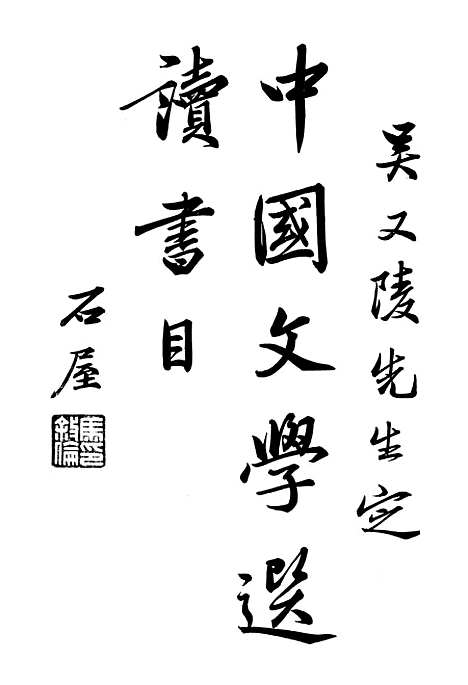 吴又陵先生定
中國文學選
讀書目
石屋
馬敘倫印